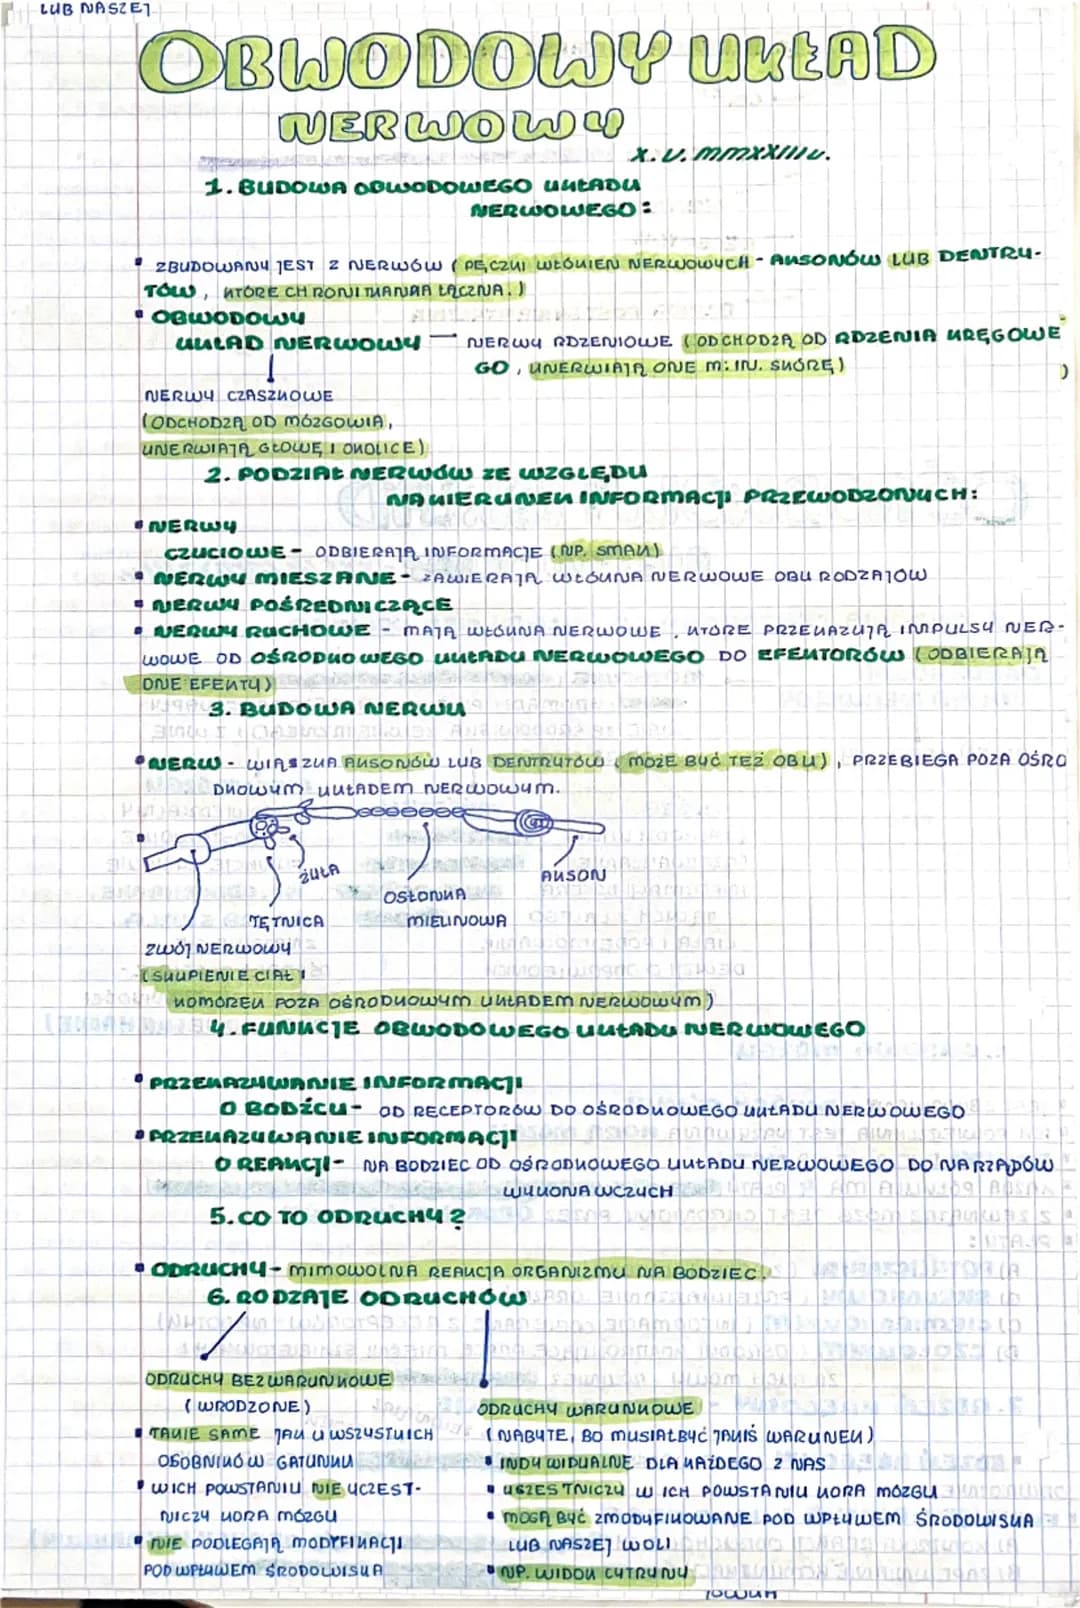 LUB NASZEJ
OBWODOWY UKŁAD
NERWOWY
X.V.MMXXIIIV.
1. BUDOWA OBWODOWEGO UKŁADU
NERWOWEGO:
ZBUDOWANY JEST Z NERWÓW (PĘCZKI WŁÓKIEN NERWOWYCH - AKSONÓW LUB DENTRY-
TÓW, KTÓRE CHRONI TKANKA ŁĄCZNA.)
OBWODOWY
UKŁAD NERWOWY — NERWY RDZENIOWE (ODCHODZĄ OD RDZENIA KRĘGOWE
GO, UNERWIAJĄ ONE M.IN. SKÓRĘ)
)
NERWY CZASZKOWE
(ODCHODZĄ OD MÓZGOWIA,
UNERWIAJĄ GŁOWĘ I OKOLICE)
2. PODZIAŁ NERWÓW ZE WZGLĘDU
NA KIERUNEK INFORMACJI PRZEWODZONYCH:
NERWY
CZUCIOWE - ODBIERAJĄ INFORMACJE (NP. SMAK)
NERWY MIESZANE - ZAWIERAJĄ WŁÓKNA NERWOWE OBU RODZAJÓW
NERWY POŚREDNICZĄCE
NERWY RUCHOWE - MAJĄ WŁÓKNA NERWOWE, KTÓRE PRZEKAZUJĄ IMPULSY NER-
WOWE OD OŚRODKOWEGO UKŁADU NERWOWEGO DO EFEKTORÓW (ODBIERAJĄ
ONE EFEKTY)
3. BUDOWA NERWU
NERW - WIĄSZKA AKSONÓW LUB DENTRYTÓW (MOŻE BYĆ TEŻ OBU), PRZEBIEGA POZA OŚRO
DKOWYM UKŁADEM NERWOWYM.
ŻYŁA
AKSON
OSŁONKA
TĘTNICA
MIELINOWA
ZWÓJ NERWOWY
(SKUPIENIE CIAŁ
KOMÓREK POZA OŚRODKOWYM UKŁADEM NERWOWYM)
4. FUNKCJE OBWODOWEGO UKŁADU NERWOWEGO
PRZEKAZYWANIE INFORMACJI
O BODŹCU - OD RECEPTORÓW DO OŚRODKOWEGO UKŁADU NERWOWEGO
PRZEKAZYWANIE INFORMACJI
O REAKCJI - NA BODZIEC OD OŚRODKOWEGO UKŁADU NERWOWEGO DO NARZĄDÓW
WYKONAWCZYCH
5. CO TO ODRUCHY?
ODRUCHY - MIMOWOLNA REAKCJA ORGANIZMU NA BODZIEC.
6. RODZAJE ODRUCHÓW
ODRUCHY BEZWARUNKOWE
(WRODZONE)
TAKIE SAME JAK U WSZYSTKICH
OSOBNIKÓW GATUNKU
W ICH POWSTANIU NIE UCZEST-
NICZY KORA MÓZGU
NIE PODLEGAJĄ MODYFIKACJI
POD WPŁYWEM ŚRODOWISKA
ODRUCHY WARUNKOWE
(NABYTE, BO MUSIAŁ BYĆ JAKIŚ WARUNEK)
INDYWIDUALNE DLA KAŻDEGO Z NAS
USZESTNICZY W ICH POWSTANIU KORA MÓZGU
MOGĄ BYĆ ZMODYFIKOWANE POD WPŁYWEM ŚRODOWISKA
LUB NASZEJ WOLI
NP. WIDOK CYTRYNY